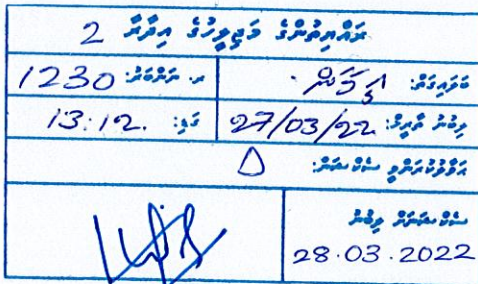 ރައްޔިތުންގެ މަޖިލީހުގެ އިދާރާ 2
ބަލައިގަތް: އީމާން ރ. ނަންބަރު: 1230
ލިބުނު ތާރީޚު: 27/03/22 ގަޑި: 13:12
ޙަވާލުކުރަންވީ ސެކްޝަން: Δ
ސެކްޝަނަށް ލިބުނު
28.03.2022